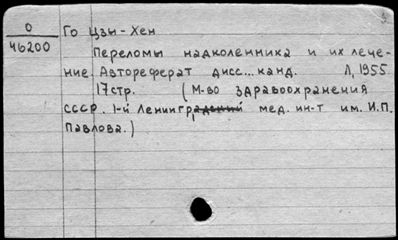 О
46200
Го Цзы-Хен
Переломы надколенника и их лече-
ние. Автореферат дисс... канд. Л, 1955
17стр. (М-во здравоохранения
СССР. 1-й Ленинградский мед. ин-т им. И.П.
Павлова.)